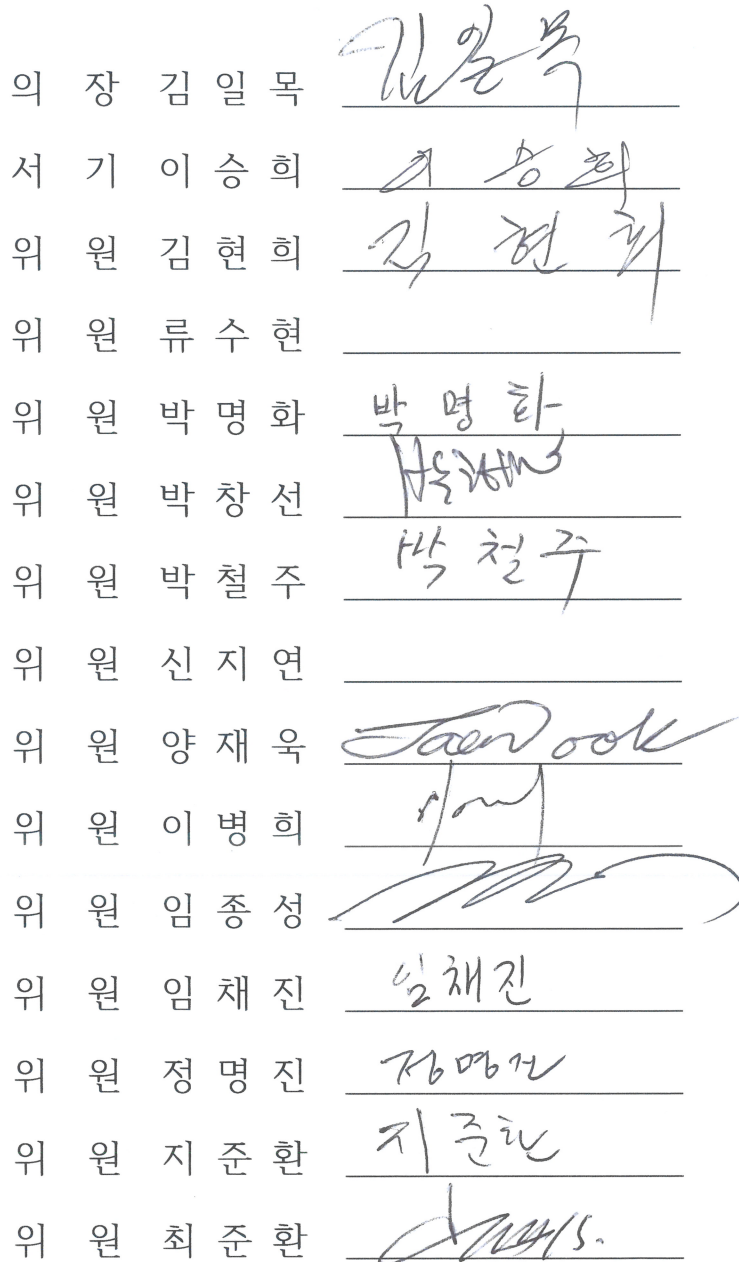 의 장 김 일 목 김일목
서 기 이 승 희 이 승 희
위 원 김 현 희 김 현 희
위 원 류 수 현
위 원 박 명 화 박 명 화
위 원 박 창 선
위 원 박 철 주 박 철 주
위 원 신 지 연
위 원 양 재 욱 JaeWook
위 원 이 병 희
위 원 임 종 성
위 원 임 채 진 임채진
위 원 정 명 진 정명진
위 원 지 준 환 지준환
위 원 최 준 환